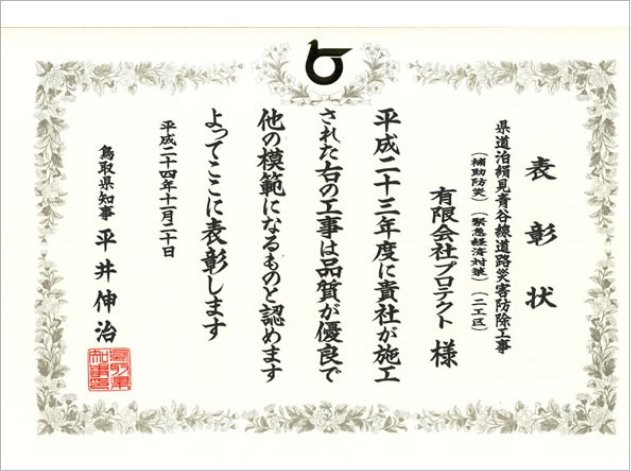 表彰状
県道泊綱見青谷線道路災害防除工事
（補助防災）（緊急経済対策）（二工区）
有限会社プロテクト 様
平成二十三年度に貴社が施工
された右の工事は品質が優良で
他の模範になるものと認めます
よってここに表彰します
平成二十四年十一月二十日
鳥取県知事 平井伸治